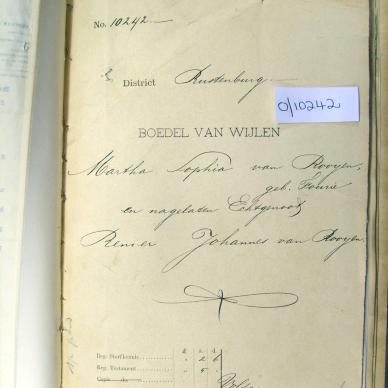 No. 10242.
District Rustenburg
0/10242
BOEDEL VAN WIJLEN
Martha Sophia van Rooyen,
geb. Fourie
en nagelaten Echtgenoot
Renier Johannes van Rooyen.
£ s. d.
Reg. Sterfkennis 2 6
Reg. Testament 5
Copie do.